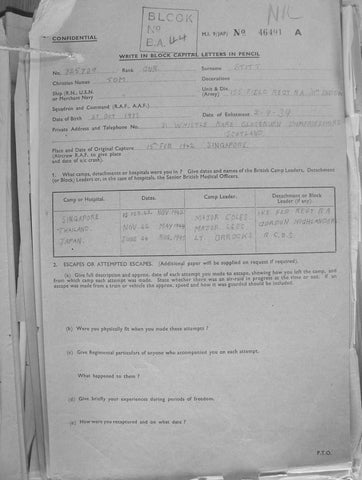 BLOCK
No
B.A 44
CONFIDENTIAL
M.I. 9/JAP/ No 46401 A
WRITE IN BLOCK CAPITAL LETTERS IN PENCIL
No. Rank GNR Surname STITT
Christian Names TOM Decorations
Ship (R.N., U.S.N. or Merchant Navy) Unit & Div. (Army) 155 FIELD REGT R.A.
Squadron and Command (R.A.F., A.A.F.)
Date of Birth 21 OCT Date of Enlistment 2-9-39
Private Address and Telephone No. WHISTLE DUMFRIESSHIRE
SCOTLAND
Place and Date of Original Capture 15TH FEB 1942 SINGAPORE.
(Aircrew R.A.F. to give place and date of a/c crash).
1. What camps, detachments or hospitals were you in? Give dates and names of the British Camp Leaders, Detachment (or Block) Leaders or, in the case of hospitals, the Senior British Medical Officers.
Camp or Hospital. Dates. Camp Leader. Detachment or Block Leader (if any).
SINGAPORE 15 FEB 42 NOV 1942 MAJOR COLES 155 FLD REGT R.A.
THAILAND. NOV 42 MAY 1944 MAJOR GORDON HIGHLANDERS
JAPAN. JUNE 44 AUG 1945 LT BROOKS
2. ESCAPES OR ATTEMPTED ESCAPES. (Additional paper will be supplied on request if required).
(a) Give full description and approx. date of each attempt you made to escape, showing how you left the camp, and from which camp each attempt was made. State whether there was an air-raid in progress at the time or not. If an escape was made from a train or vehicle the approx. speed and how it was guarded should be included.
(b) Were you physically fit when you made these attempts?
(c) Give Regimental particulars of anyone who accompanied you on each attempt.
What happened to them?
(d) Give briefly your experiences during periods of freedom.
(e) How were you recaptured and on what date?
P.T.O.